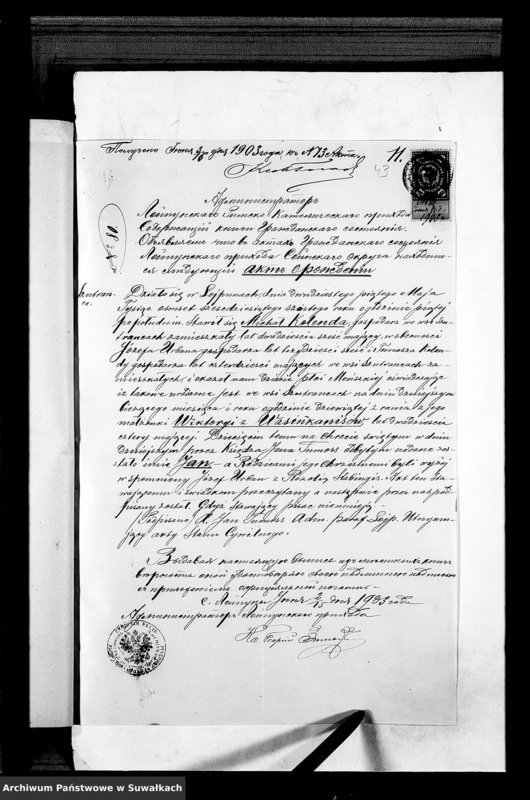 Получено Іюня 9/6 дня 1903 года, къ N 73 Акта
11.
43
Администраторъ
Лейпунскаго Римско Католическаго прихода
Содержащій книги Гражданскаго состоянія
Объявляетъ что въ Актахъ Гражданскаго состоянія
Лейпунскаго прихода Сейнскаго округа находит-
ся слѣдующій актъ о рожденіи
Działo się w Lejpunach dnia dwudziestego piątego Maja
Tysiąc ośmset sześćdziesiątego szóstego roku o godzinie piątej
popołudniu. Stawił się Michał Kolenda, gospodarz we wsi
zamieszkały lat dwadzieścia sześć mający, w obecności
Józefa Urbana gospodarza lat trzydzieści sześć i Tomasza Kolen-
dy gospodarza lat czterdzieści mających we wsi za-
mieszkałych i okazał nam dziecię płci Męzkiej oświadczając
iż takowe urodzone jest we wsi na dniu dzisiejszym
bieżącego miesiąca i roku o godzinie dziewiątej z rana z jego
małżonki Wiktoryi z lat dwadzieścia
cztery mającej. Dziecięciu temu na Chrzcie świętym w dniu
dzisiejszym przez Księdza Jana odbytym nadane zo-
stało imie Jan a Rodzicami jego Chrzestnemi byli wyżej
wspomniony Józef Urban z Rozalią. Akt ten sta-
wającemu i świadkom przeczytany a następnie przez nas pod-
pisany został. Gdyż stawający pisać nieumieją.
(Podpisano) X. Jan Adm. paraf. Lejp. Utrzym-
ujący akty Stanu Cywilnego.
Выдавая настоящую выпись изъ
вѣрность оной удостовѣряю своею подписью
и приложеніемъ оффиціальной печати.
с. Лейпуны Іюня дня 1903 года
Администраторъ Лейпунскаго прихода
Archiwum Państwowe w Suwałkach